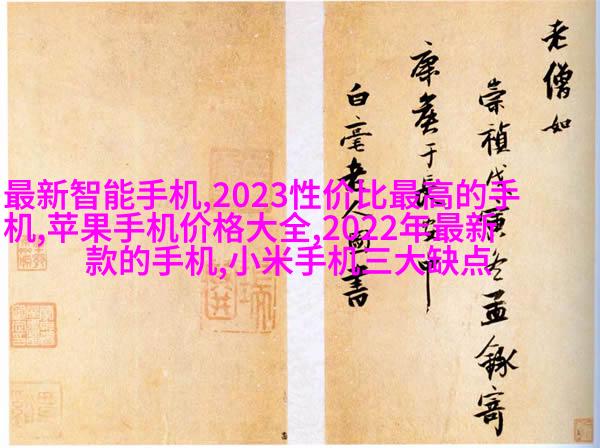 最新智能手机,2023性价比最高的手
机,苹果手机价格大全,2022年最新
款的手机,小米手机三大缺点
老僧如
崇禎戊寅冬孟錄寄
康侯于長安中
白毫人書